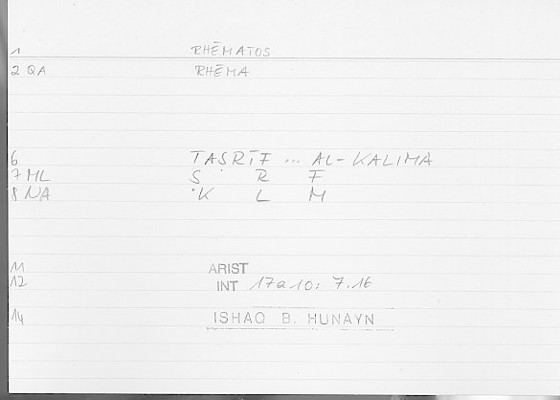 1 RHĒMATOS
2 QA RHĒMA
6 TASRĪF ... AL-KALIMA
7 ML Ṣ R F
8 NA K L M
11 ARIST
12 INT 17a10; 7.16
14 ISHAQ B. HUNAYN